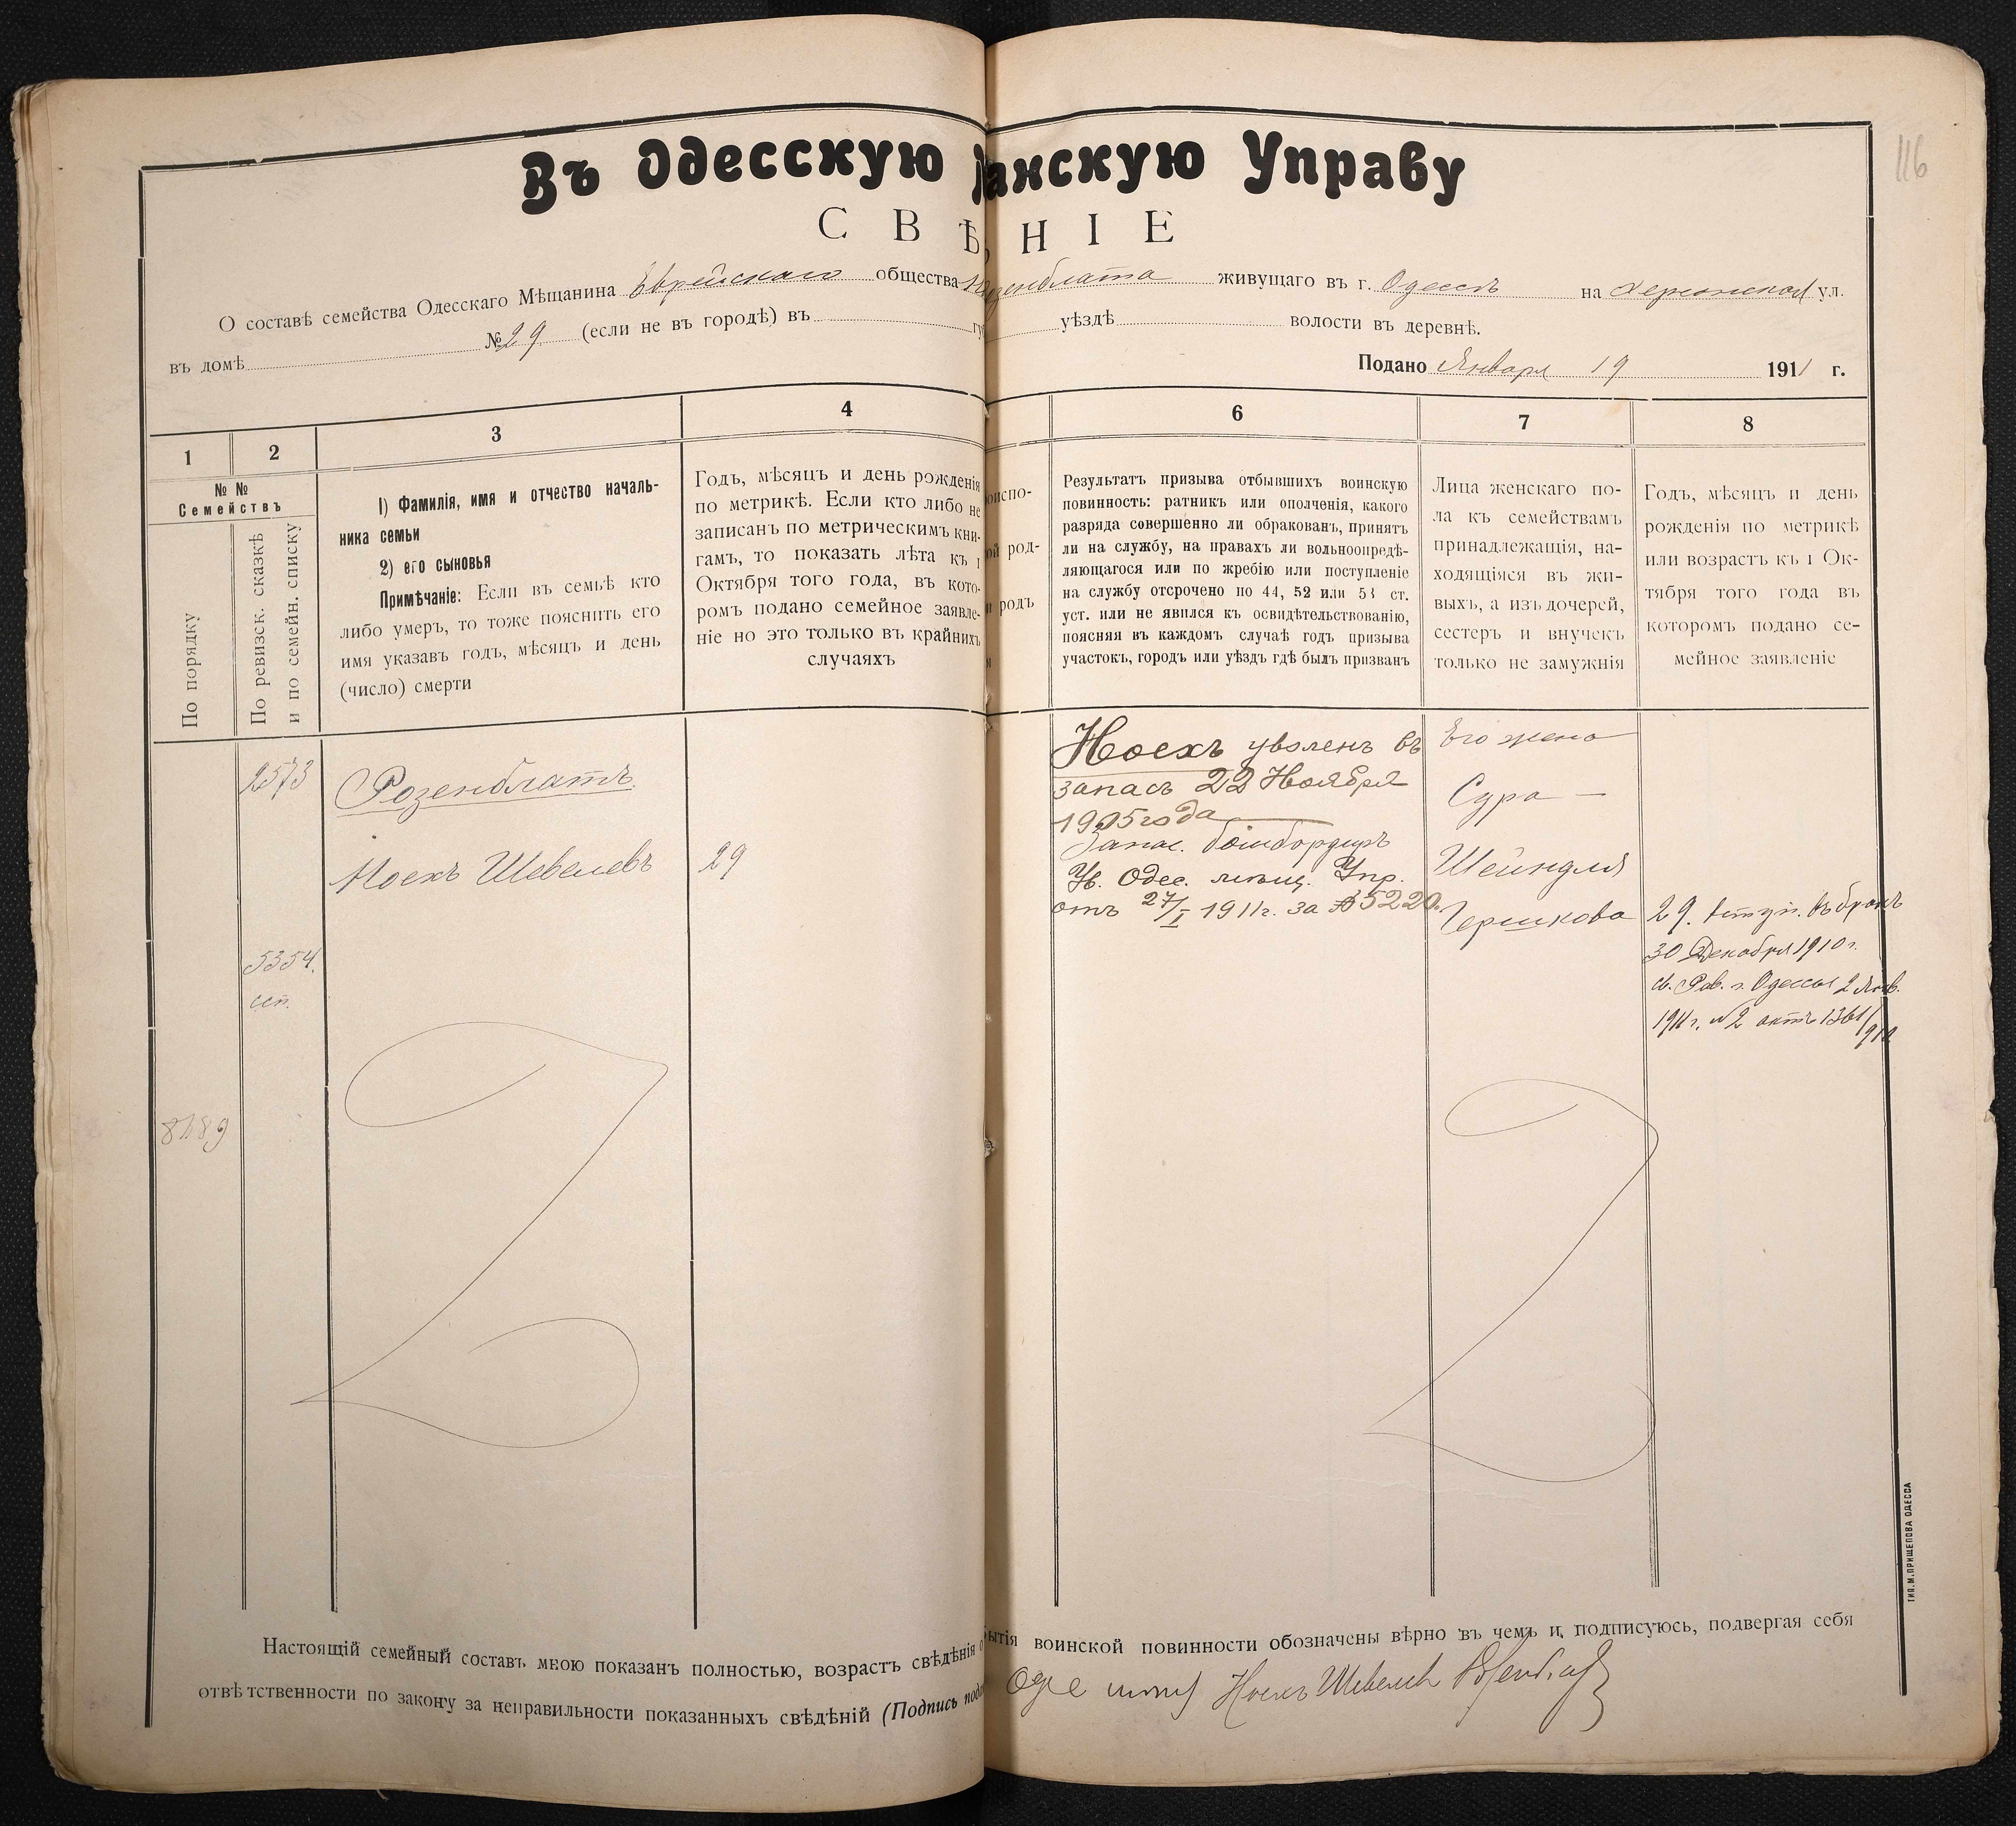 116
Въ Одесскую анскую Управу
СВѢНІЕ
О составѣ семейства Одесскаго Мѣщанина Еврейскаго общества зенблата живущаго въ г. Одессѣ на Херсонской ул.
въ домѣ № 29 (если не въ городѣ) въ уѣздѣ волости въ деревнѣ.
Подано Января 19 1911 г.
1
2
3
4
6
7
8
№ №
Семействъ
По порядку
По ревизск. сказкѣ
и по семейн. списку
1) Фамилія, имя и отчество началь-
ника семьи
2) его сыновья
Примѣчаніе: Если въ семьѣ кто
либо умеръ, то тоже пояснить его
имя указавъ годъ, мѣсяцъ и день
(число) смерти
Годъ, мѣсяцъ и день рожденія
по метрикѣ. Если кто либо не
записанъ по метрическимъ кни-
гамъ, то показать лѣта къ 1
Октября того года, въ кото-
ромъ подано семейное заявле-
ніе но это только въ крайнихъ
случаяхъ
риспо-
ой род-
и родъ
Результатъ призыва отбывшихъ воинскую
повинность: ратникъ или ополченія, какого
разряда совершенно ли обракованъ, принятъ
ли на службу, на правахъ ли вольноопредѣ-
ляющагося или по жребію или поступленіе
на службу отсрочено по 44, 52 или 53 ст.
уст. или не явился къ освидѣтельствованію,
поясняя въ каждомъ случаѣ годъ призыва
участокъ, городъ или уѣздъ гдѣ былъ призванъ
Лица женскаго по-
ла къ семействамъ
принадлежащія, на-
ходящіяся въ жи-
выхъ, а изъ дочерей,
сестеръ и внучекъ
только не замужнія
Годъ, мѣсяцъ и день
рожденія по метрикѣ
или возрастъ къ 1 Ок-
тября того года въ
которомъ подано се-
мейное заявленіе
2573
Розенблатъ
Ноехъ Шевелевъ
29
5354.
8489
Ноехъ уволенъ въ
запасъ 22 Ноября
1905 года
Запас. бомбордиръ
Ув. Одес. мѣщ. Упр.
отъ 27/I 1911г. за № 5220.
Его жена
Сура —
Шейндля
Гершкова
29. вступ. въ бракъ
30 Декабря 1910 г.
св. Рав. г. Одессы 2 Янв.
1911 г. № 2 актъ 1361/910
Настоящій семейный составъ мною показанъ полностью, возрастъ свѣдѣнія о бытія воинской повинности обозначены вѣрно въ чемъ и подписуюсь, подвергая себя
отвѣтственности по закону за неправильности показанныхъ свѣдѣній (Подпись пода Ноехъ Шевелевъ Розенблатъ
ТИП. М. ПРИЩЕПОВА ОДЕССА